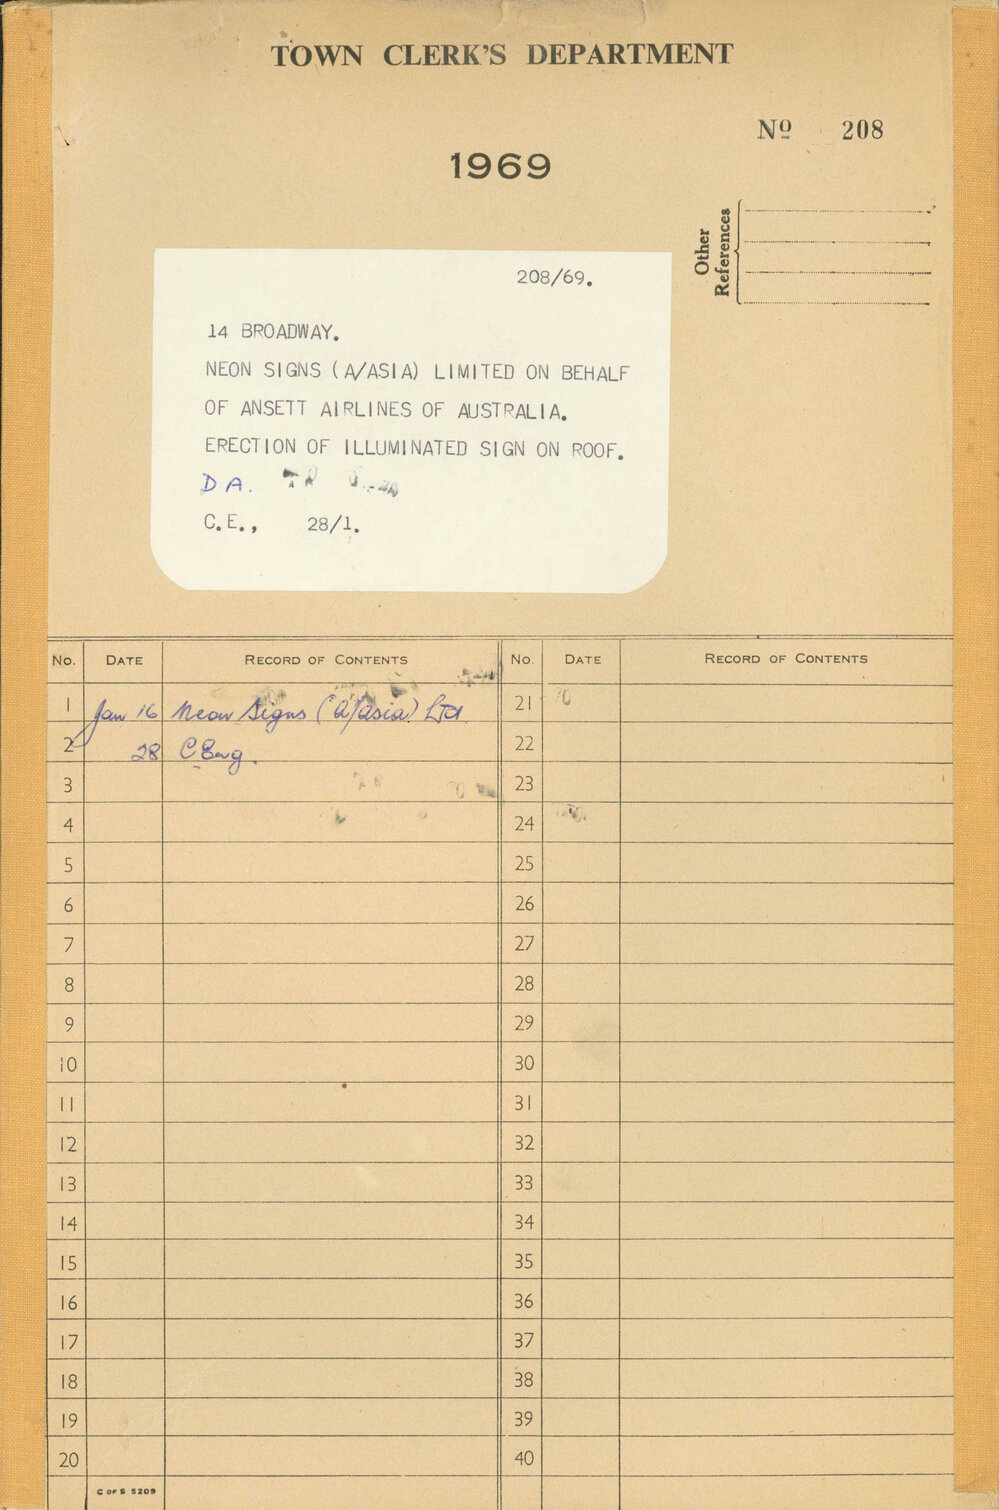 TOWN CLERK'S DEPARTMENT
Nº 208
1969
Other References
208/69.
14 BROADWAY.
NEON SIGNS (A/ASIA) LIMITED ON BEHALF
OF ANSETT AIRLINES OF AUSTRALIA.
ERECTION OF ILLUMINATED SIGN ON ROOF.
D A.
C.E., 28/1.
No. DATE RECORD OF CONTENTS No. DATE RECORD OF CONTENTS
1 Jan 16 Neon Signs (A/asia) Ltd. 21
2 28 C Eng. 22
3 23
4 24
5 25
6 26
7 27
8 28
9 29
10 30
11 31
12 32
13 33
14 34
15 35
16 36
17 37
18 38
19 39
20 40
C OF S 5209